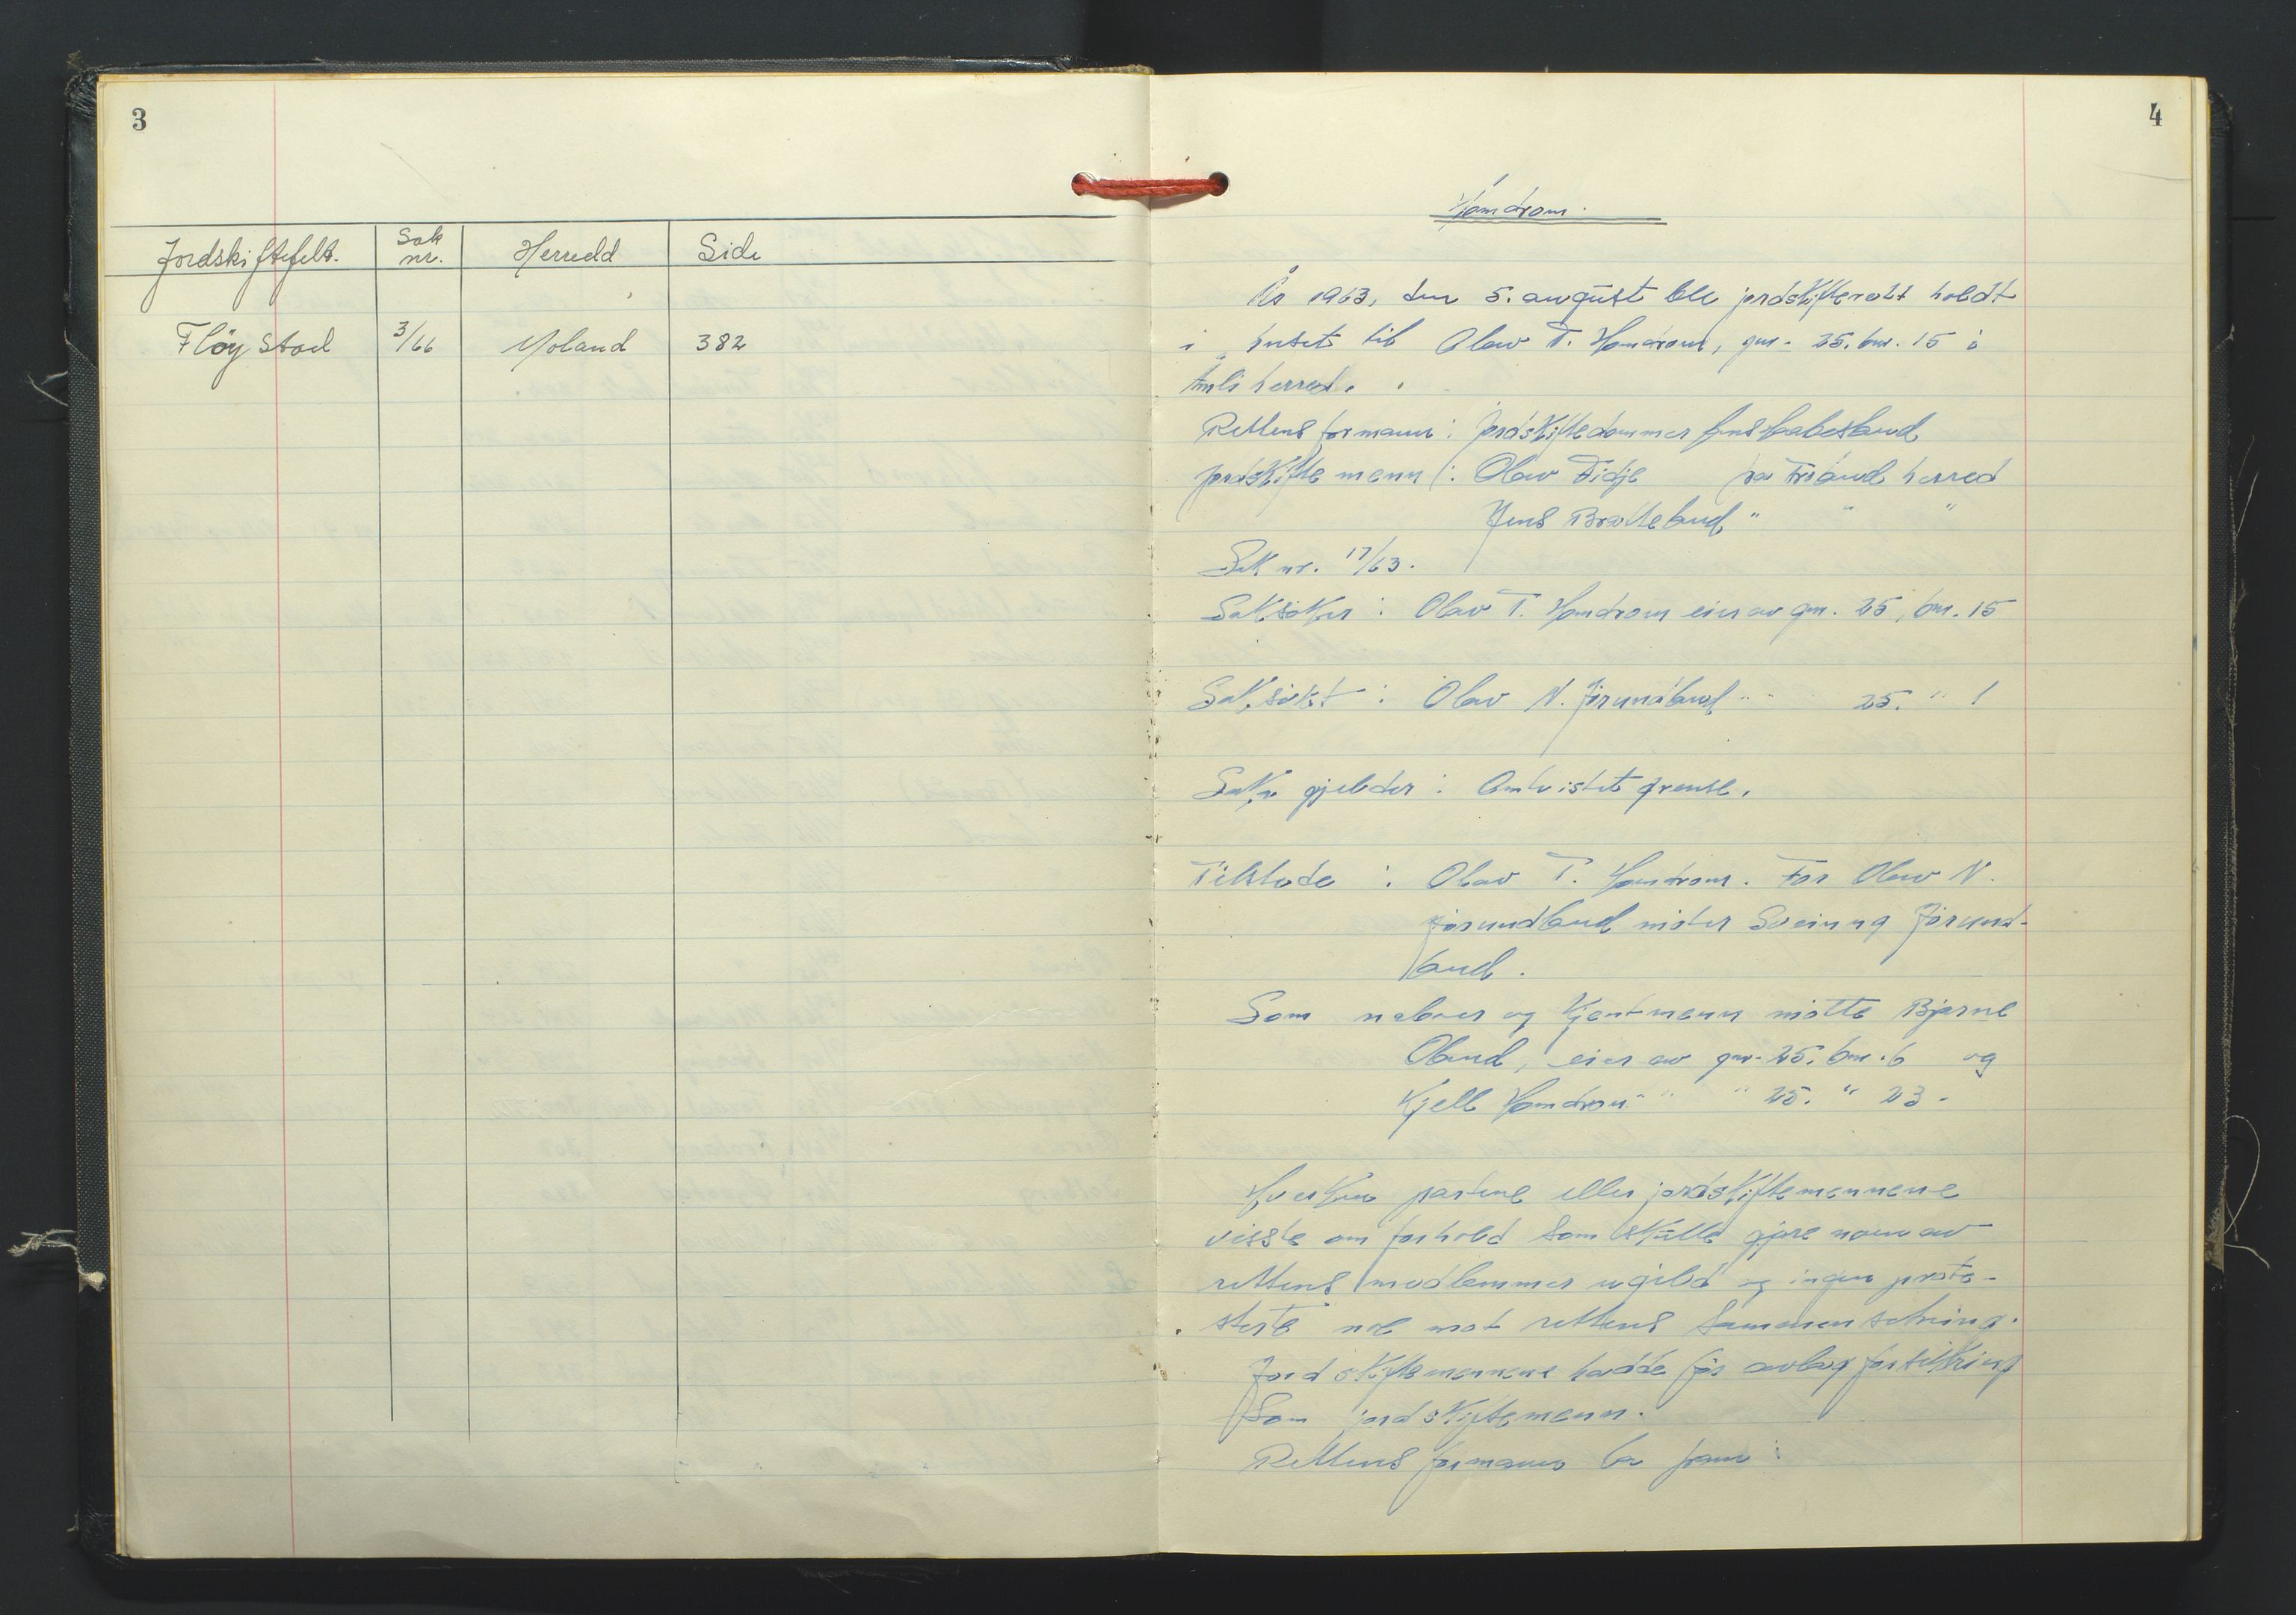 3
Jordskiftefelt. Sak nr. Herredd Side
Fløystad 3/66 Moland 382
4
Hamdrom.
År 1963, den 5. august ble jordskifterett holdt
i huset til Olav T. Hamdrom, gnr. 25. bnr. 15 i
Åmli herred.
Rettens formann: Jordskiftedommer
Jordskiftemenn: Olav Fidje fra Froland herred
Jens Bratteland " " "
Sak nr. 17/63.
Saksøker: Olav T. Hamdrom eier av gnr. 25, bnr. 15
Saksøkt: Olav N. Jørundland " " 25. " 1
Saka gjelder: Omtvistet grense.
Tilstede: Olav T. Hamdrom. For Olav N.
Jørundland møter Sveinung Jørund-
land.
Som naboer og kjentmenn møtte Bjarne
Oland, eier av gnr. 25. bnr. 6 og
Kjell Hamdrom " " " 25. " 23.
Hverken partene eller jordskiftemennene
visste om forhold som skulle gjøre noen av
rettens medlemmer ugild og ingen prote-
sterte noe mot rettens sammensetning.
Jordskiftemennene hadde før avlagt forsikring
som jordskiftemenn.
Rettens formann la fram: